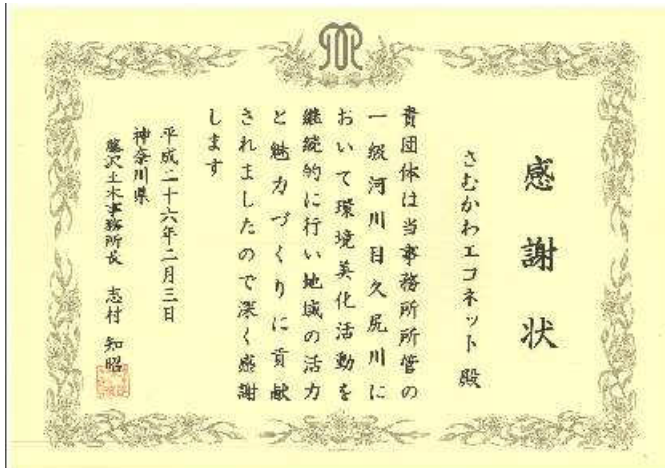 感謝状
さむかわエコネット殿
貴団体は当事務所所管の
一級河川目久尻川に
おいて環境美化活動を
継続的に行い地域の活力
と魅力づくりに貢献
されましたので深く感謝
します
平成二十六年二月三日
神奈川県
藤沢土木事務所長 志村知昭